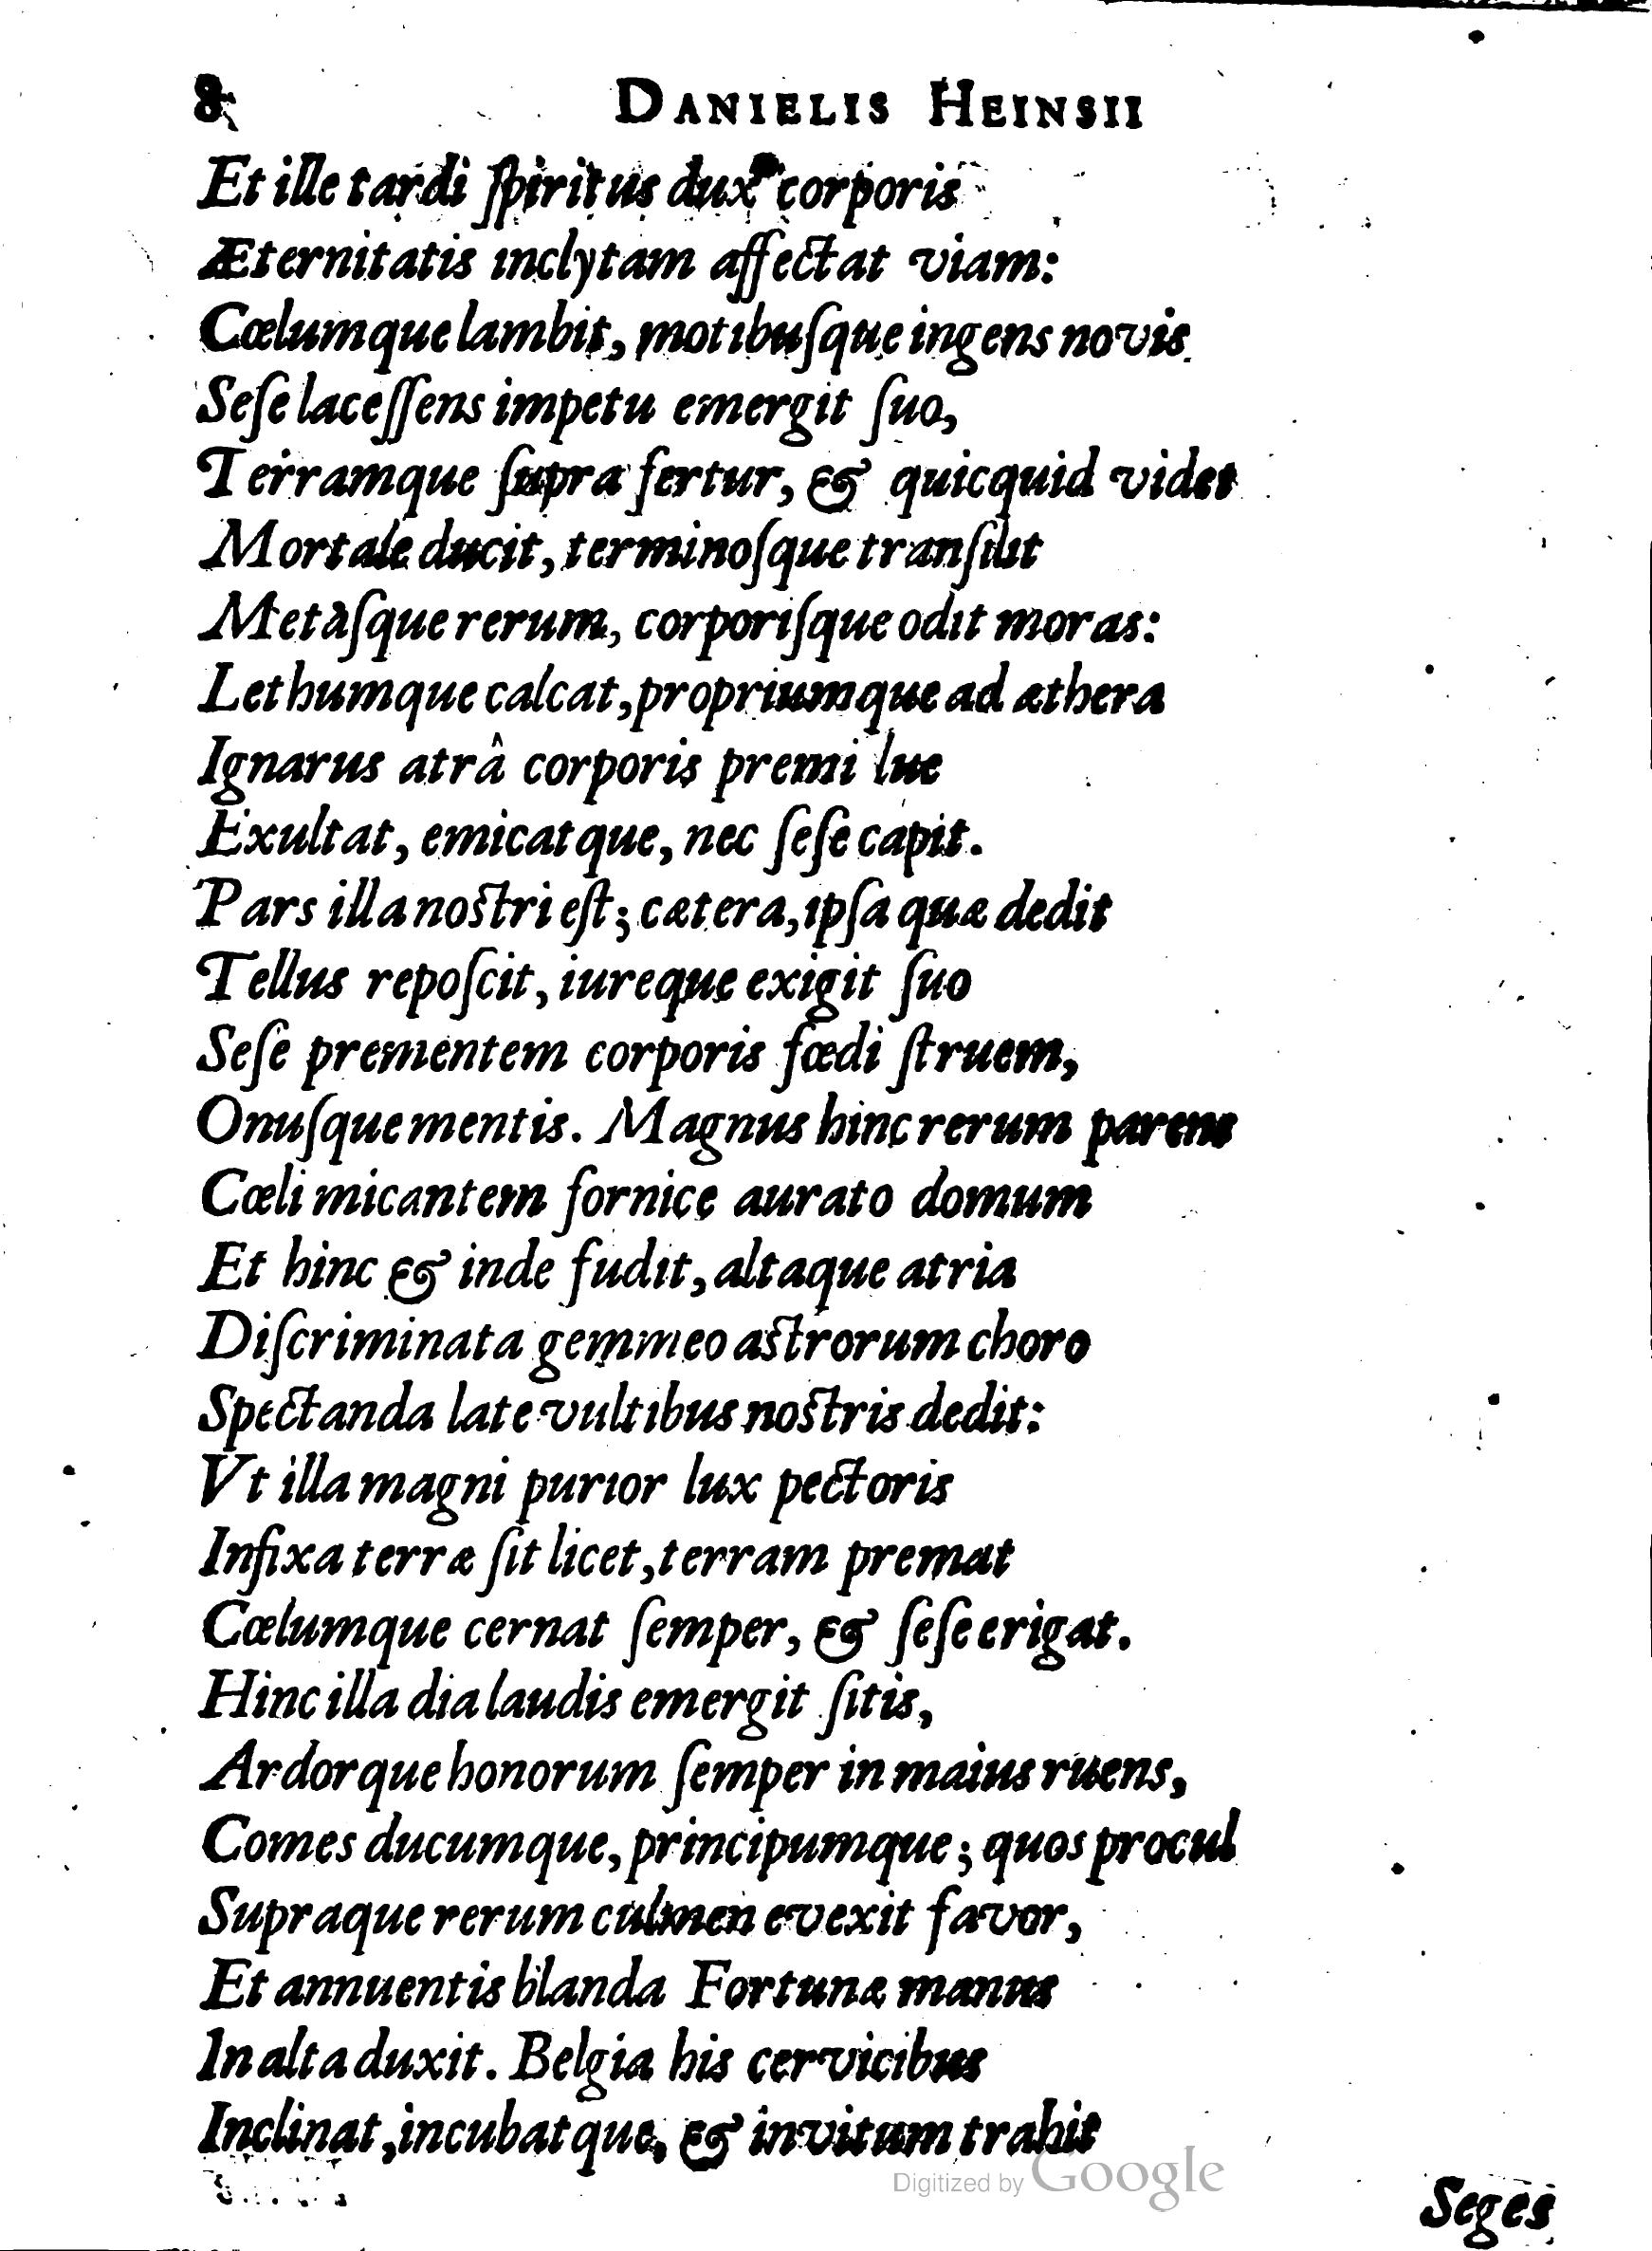 8 DANIELIS HEINSII
Et ille tardi ſpiritus dux corporis
Æternitatis inclytam affectat viam:
Cœlumque lambit, motibuſque ingens novis
Seſe laceſſens impetu emergit ſuo,
Terramque ſupra fertur, & quicquid videt
Mortale ducit, terminoſque tranſilit
Metàſque rerum, corporiſque odit moras:
Lethumque calcat, propriumque ad æthera
Ignarus atrâ corporis premi lue
Exultat, emicatque, nec ſeſe capit.
Pars illa noſtri eſt; cætera, ipſa quæ dedit
Tellus repoſcit, iureque exigit ſuo
Seſe prementem corporis fœdi ſtruem,
Onuſque mentis. Magnus hinc rerum parens
Cœli micantem fornice aurato domum
Et hinc & inde fudit, altaque atria
Diſcriminata gemmeo aſtrorum choro
Spectanda late vultibus noſtris dedit:
Vt illa magni purior lux pectoris
Infixa terræ ſit licet, terram premat
Cœlumque cernat ſemper, & ſeſe erigat.
Hinc illa dia laudis emergit ſitis,
Ardorque honorum ſemper in maius ruens,
Comes ducumque, principumque; quos procul
Supraque rerum culmen evexit favor,
Et annuentis blanda Fortunæ manus
In alta duxit. Belgia his cervicibus
Inclinat, incubatque, & invitum trahit
Digitized by Google
Seges